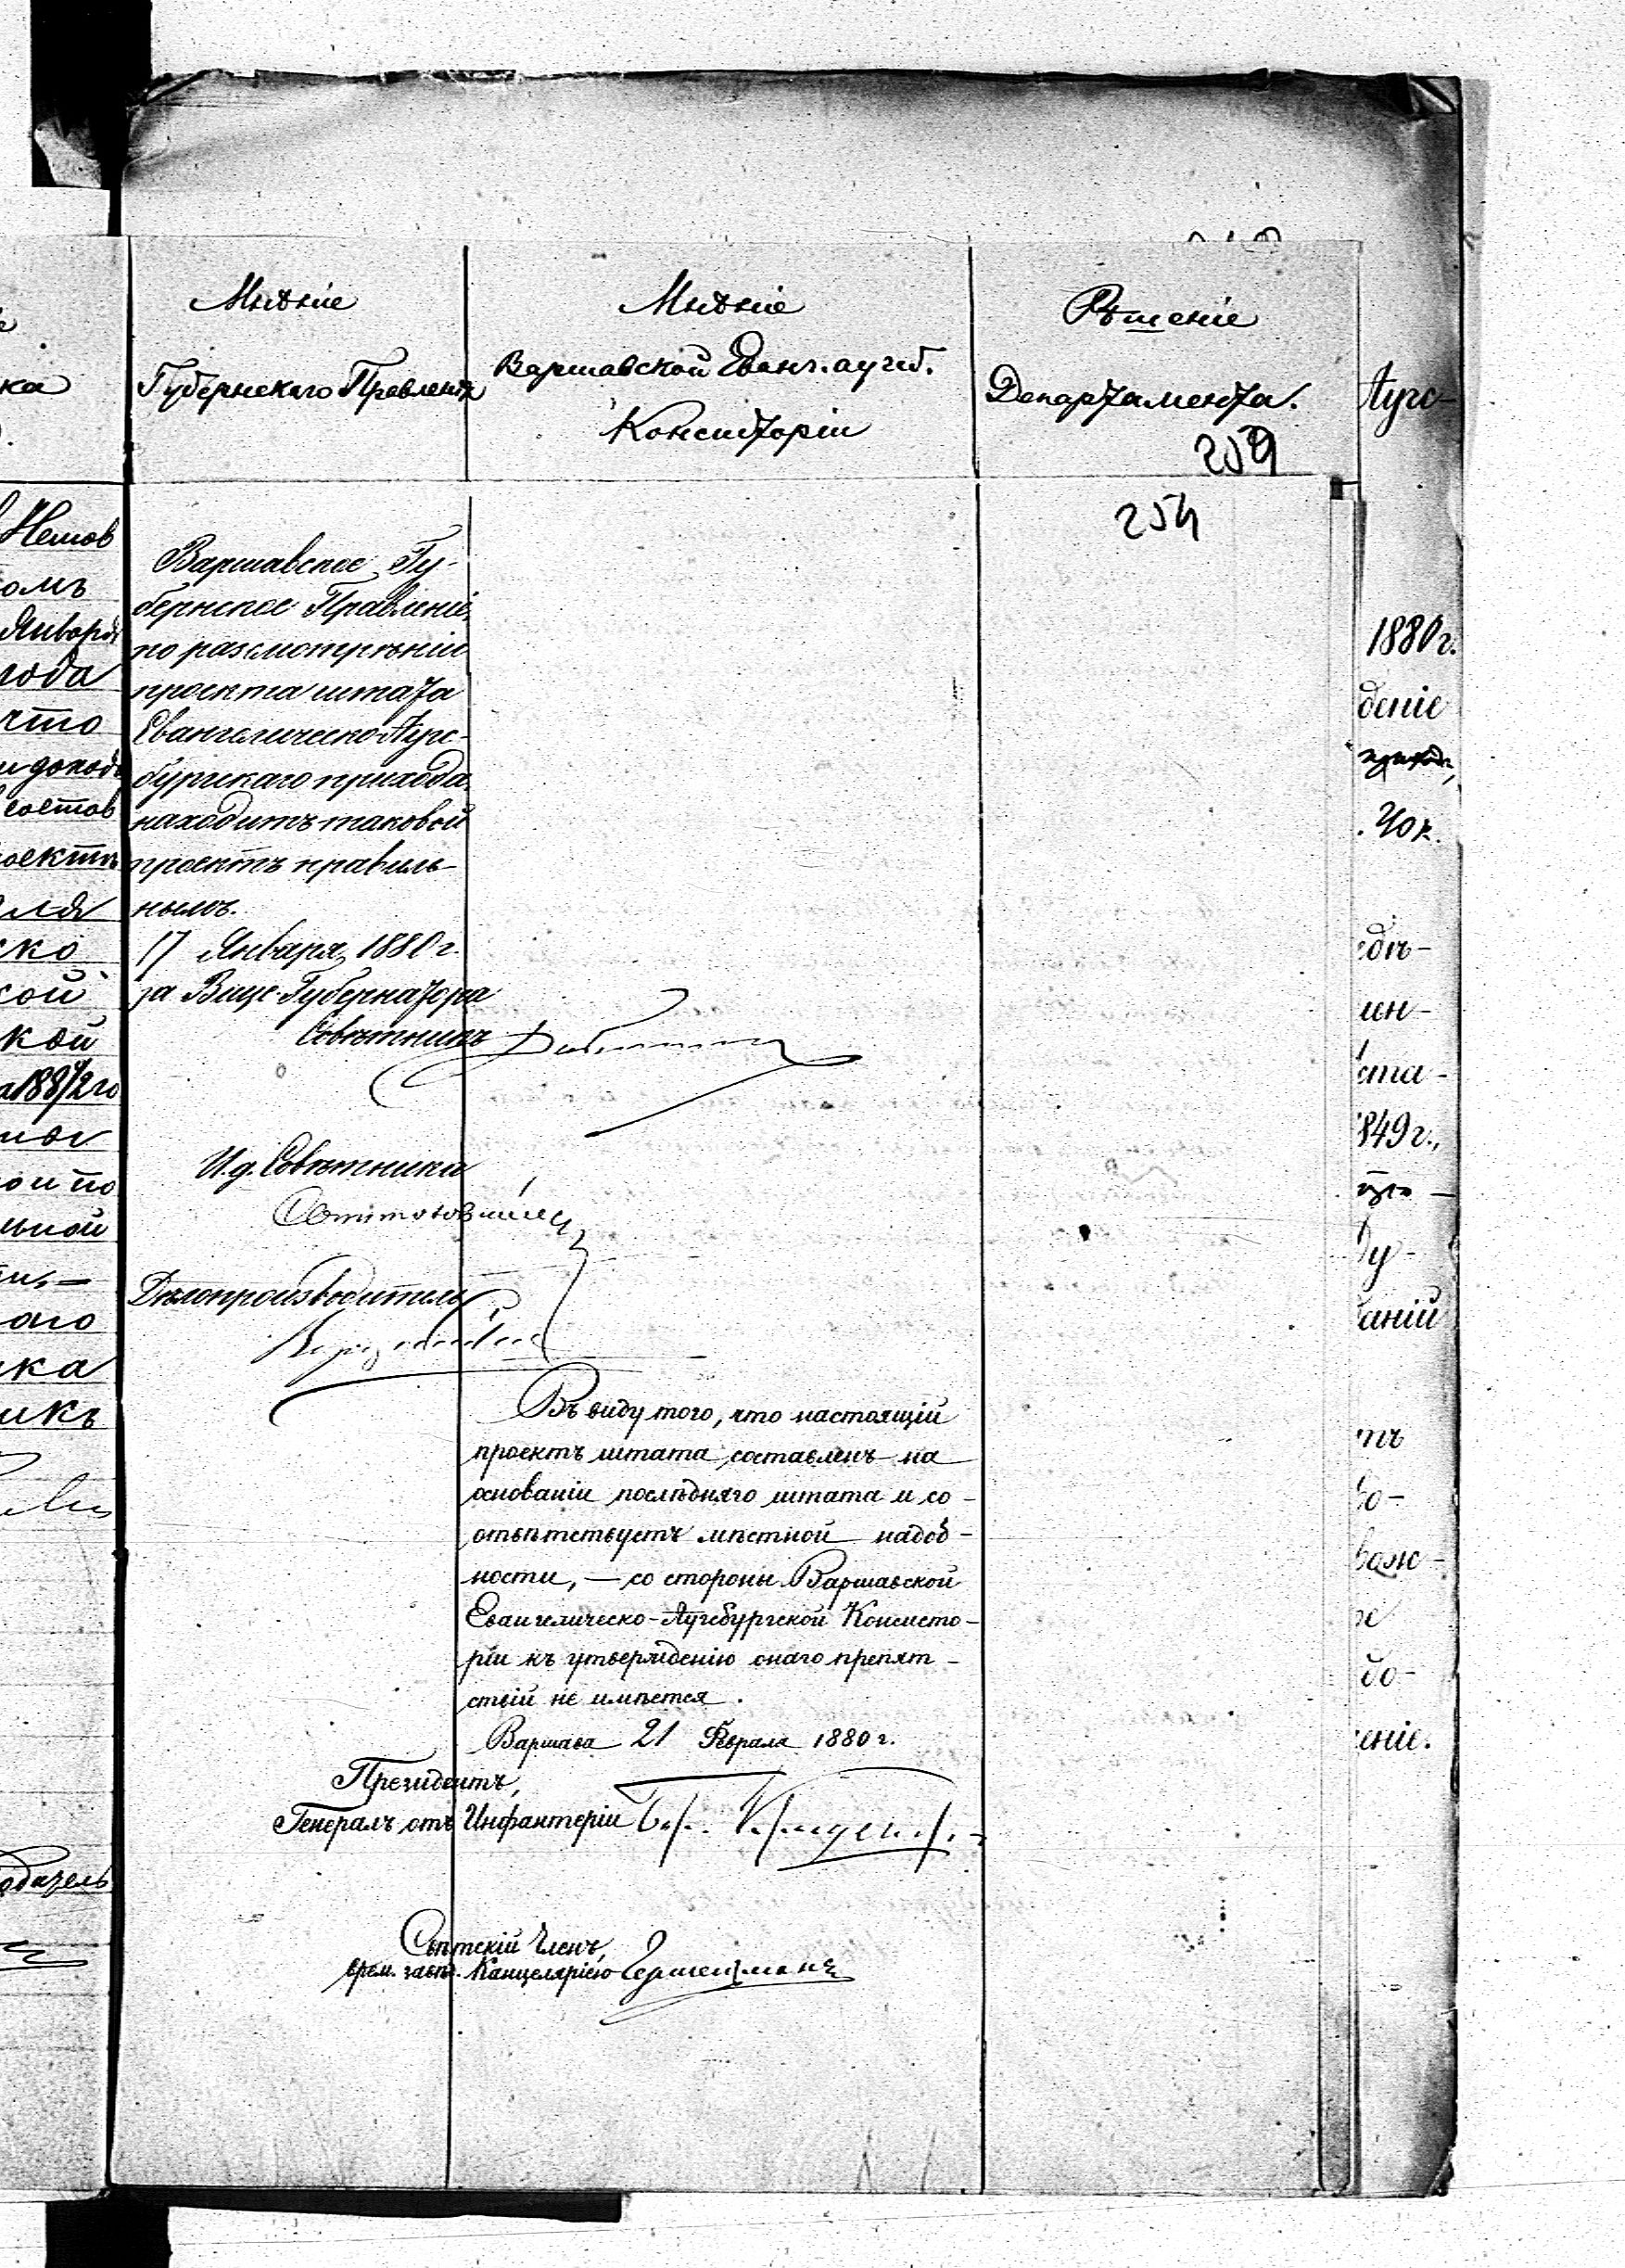 Мнѣніе
Губернскаго Правленія
Мнѣніе
Варшавской Еванг. аугсб.
Консисторіи
Рѣшеніе
Департамента.
259
254
Аугс-
ка
Варшавское Гу-
бернское Правленіе,
по разсмотрѣніи
проекта штата
Евангелическо-Аугс-
бургскаго прихода,
находитъ таковой
проектъ правиль-
нымъ.
17 Января 1880 г.
за Вице-Губернатора
Совѣтникъ
И.д. Совѣтника
Дѣлопроизводитель
Въ виду того, что настоящій
проектъ штата составленъ на
основаніи послѣдняго штата и со-
отвѣтствуетъ мѣстной надоб-
ности, — со стороны Варшавской
Евангелическо-Аугсбургской Консисто-
ріи къ утвержденію онаго препят-
ствій не имѣется.
Варшава 21 Февраля 1880 г.
Президентъ,
Генералъ отъ Инфантеріи
Свѣтскій Членъ,
врем. завѣд. Канцеляріею
омъ
Января
года
что
ско
кой
кой
а 1881/2 го
ои по
льной
аго
ика
икъ
1880 г.
деніе
40 к.
едѣ-
ин-
ста-
849 г.,
ду-
аній
тъ
во-
до-
еніе.